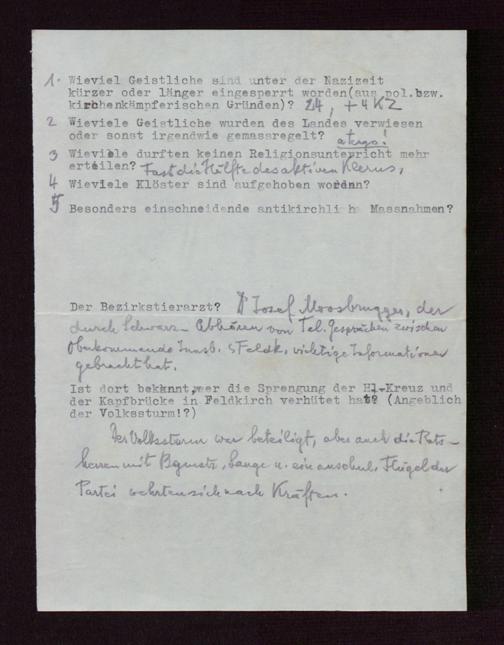 1. Wieviel Geistliche sind unter der Nazizeit
kürzer oder länger eingesperrt worden(aus pol.bzw.
kirchenkämpferischen Gründen)? 24, + 4 KZ
2 Wieviele Geistliche wurden des Landes verwiesen
oder sonst irgendwie gemassregelt?
3 Wieviele durften keinen Religionsunterricht mehr
erteilen? Fast die Hälfte des aktiven Klerus,
4 Wieviele Klöster sind aufgehoben worden?
5 Besonders einschneidende antikirchliche Massnahmen?
Der Bezirkstierarzt? Dr Josef Moosbrugger, der
durch Schwarz-Abhören von Tel. Gesprächen zwischen
Oberkommando Innsb. & Feldk. wichtige Informationen
gebracht hat.
Ist dort bekannt,wer die Sprengung der Hl.Kreuz und
der Kapfbrücke in Feldkirch verhütet hat? (Angeblich
der Volkssturm!?)
Der Volkssturm war beteiligt, aber auch die Rats-
herren mit Bgmstr. Lange u. ein anschul. Flügel der
Partei wehrten sich nach Kräften.